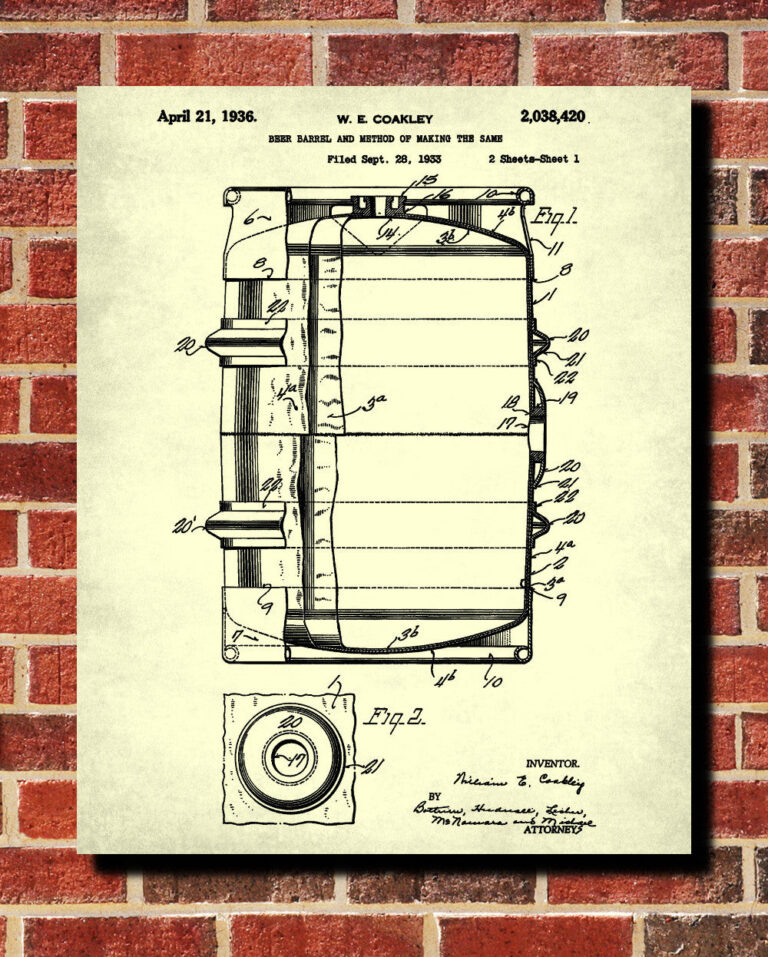 April 21, 1936. W. E. COAKLEY 2,038,420
BEER BARREL AND METHOD OF MAKING THE SAME
Filed Sept. 28, 1933 2 Sheets-Sheet 1
15
16
10
Fig. 1.
6
14
3b
4b
11
8
8
1
22
20
20
21
22
4a
3a
19
18
17
20
21
22
22
20'
20
4a
2
3a
9
9
7
3b
4b
10
1
Fig. 2.
20
17
21
INVENTOR.
William E. Coakley
BY
McNamara and
ATTORNEYS